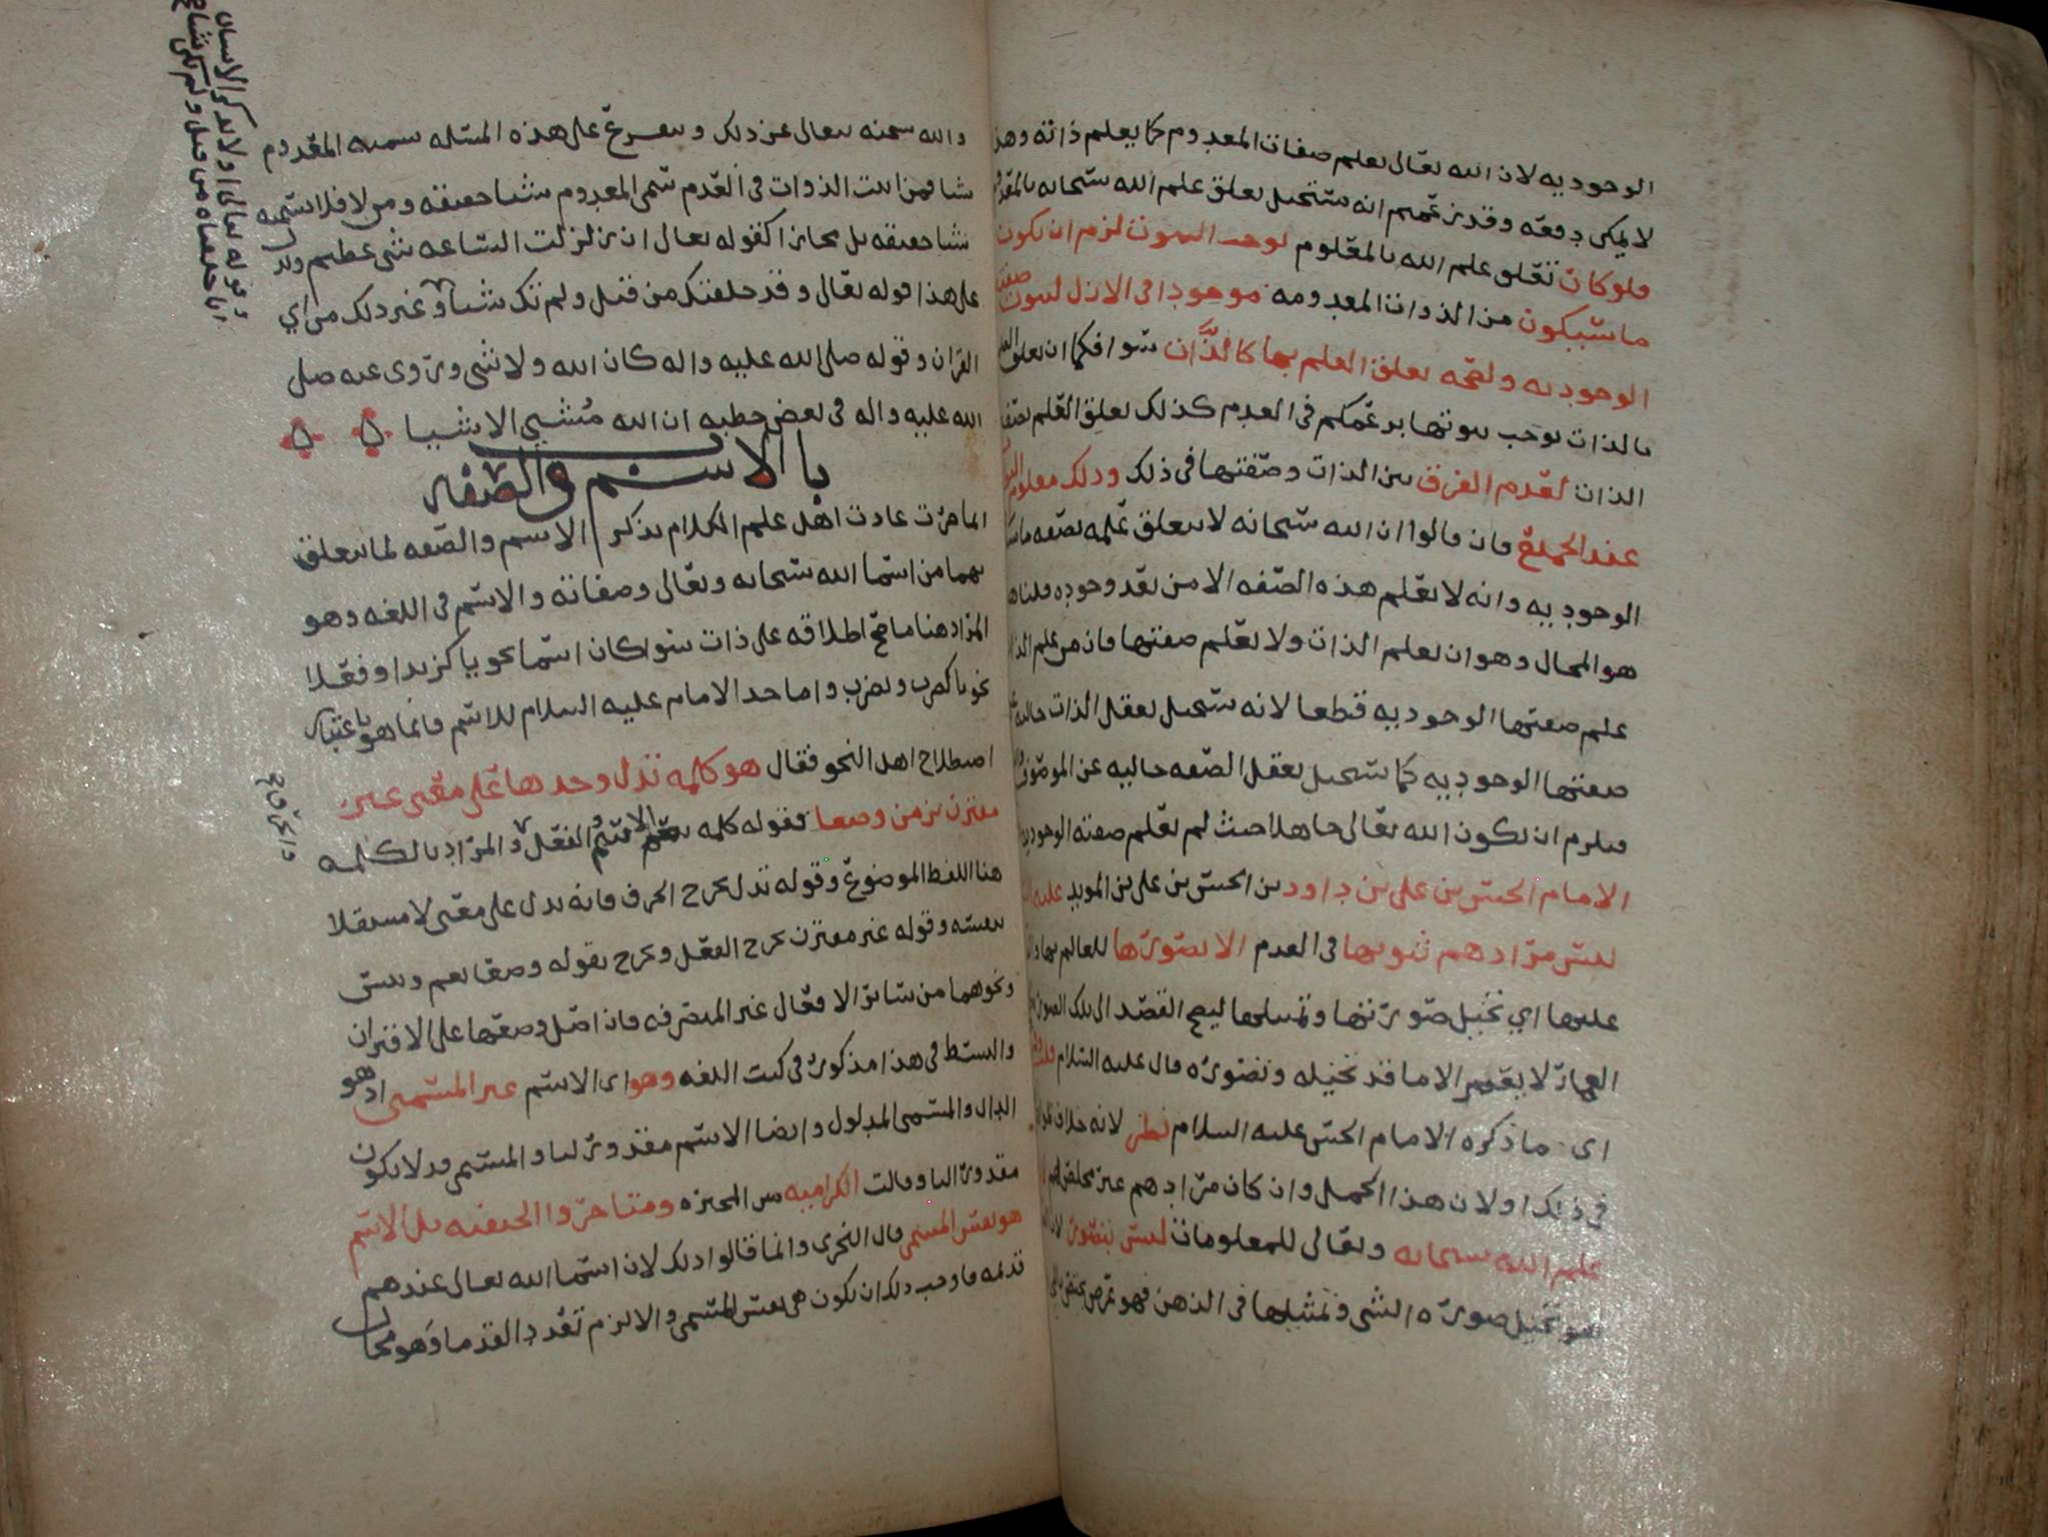 الوجوديه لان الله تعالى يعلم صفات المعدوم كما يعلم ذاته وهذا
لا يمكن دفعه وقد زعمتم انه يستحيل تعلق علم الله سبحانه بالمعدوم
فلو كان تعلق علم الله بالمعلوم يوجب الثبوت لزم ان يكون
ما سيكون من الذوات المعدومه موجودا في الازل لثبوت صفته
الوجوديه ولصحه تعلق العلم بها كالذات سوا فكما ان تعلق العلم
بالذات يوجب ثبوتها بزعمكم في العدم كذلك تعلق العلم بصفة
الذات لعدم الفرق بين الذات وصفتها في ذلك وذلك معلوم
عند الجميع فان قالوا ان الله سبحانه لا يتعلق علمه بصفه
الوجوديه وانه لا يعلم هذه الصفه الا من بعد وجوده قلنا هذا
هو المحال وهو ان يعلم الذات ولا يعلم صفتها فان من علم الذات
علم صفتها الوجوديه قطعا لانه يستحيل تعقل الذات خاليه عن
صفتها الوجوديه كما يستحيل تعقل الصفه خاليه عن الموصوف
فيلزم ان يكون الله تعالى جاهلا حيث لم يعلم صفته الوجوديه
الامام الحسن بن علي بن داود بن الحسن بن علي بن المويد عليه
ليس مرادهم ثبوتها في العدم الا تصورها للعالم بها
عليها اي تخيل صورتها وتمثلها ليصح القصد الى تلك الصوره
العماره لا يقصد الا ما قد تخيله وتصوره قال عليه السلام قلت
اي ما ذكره الامام الحسن عليه السلام نظر لانه خلاف
في ذلك ولان هذا الحمل وان كان مرادهم غير مخلص لهم
علم الله سبحانه وتعالى للمعلومات ليس بتصور لان
هو تخيل صورة الشي وتمثيلها في الذهن فهو عرض يختص
والله سبحنه يتعالى عن ذلك ويتفرع على هذه المسئله تسميه المعدوم
شيا فمن اثبت الذوات في العدم سمى المعدوم شيا حقيقه ومن لا فلا تسميه
شيا حقيقه بل مجازا كقوله تعالى ان زلزلت الساعه شي عظيم
على هذا قوله تعالى وقد خلقتك من قبل ولم تك شيا وغير ذلك من اي
القران وقوله صلى الله عليه واله كان الله ولا شي وروي عنه صلى
الله عليه واله في بعض خطبه ان الله مُشيي الاشيا
باب الاسم والصفه
لما جرت عادت اهل علم الكلام بذكر الاسم والصفه لما يتعلق
بهما من اسما الله سبحانه وتعالى وصفاته والاسم في اللغه وهو
المراد هنا ما صح اطلاقه على ذات سوا كان اسما نحويا كزيد او فعلا
نحويا كضرب ويضرب واما حد الامام عليه السلام للاسم فانما هو باعتبار
اصطلاح اهل النحو فقال هو كلمه تدل وحدها على معنى غير
مقترن بزمن وضعا فقوله كلمه يعم الاسم والفعل والمراد بالكلمه
هنا اللفظ الموضوع وقوله تدل يخرج الحرف فانه يدل على معنى لا مستقلا
بنفسه وقوله غير مقترن يخرج الفعل ويخرج بقوله وضعا نعم وبيس
ونحوهما من ساير الافعال غير المتصرفه فان اصل وضعها على الاقتران
والبسط في هذا مذكور في كتب اللغه وهو اي الاسم غير المسمى اذ هو
الدال والمسمى المدلول وايضا الاسم مقدور لنا والمسمى قد لا يكون
مقدورا لنا وقالت الكراميه من المجبره ومتاخروا الحنفيه بل الاسم
هو نفس المسمى قال النجري وانما قالوا ذلك لان اسما الله تعالى عندهم
قديمه فاوجب ذلك ان تكون هي نفس المسمى والا لزم تعدد القدما وهو محال
وقوله تعالى اولا يذكر الانسان
انا خلقناه من قبل ولم يك شيا